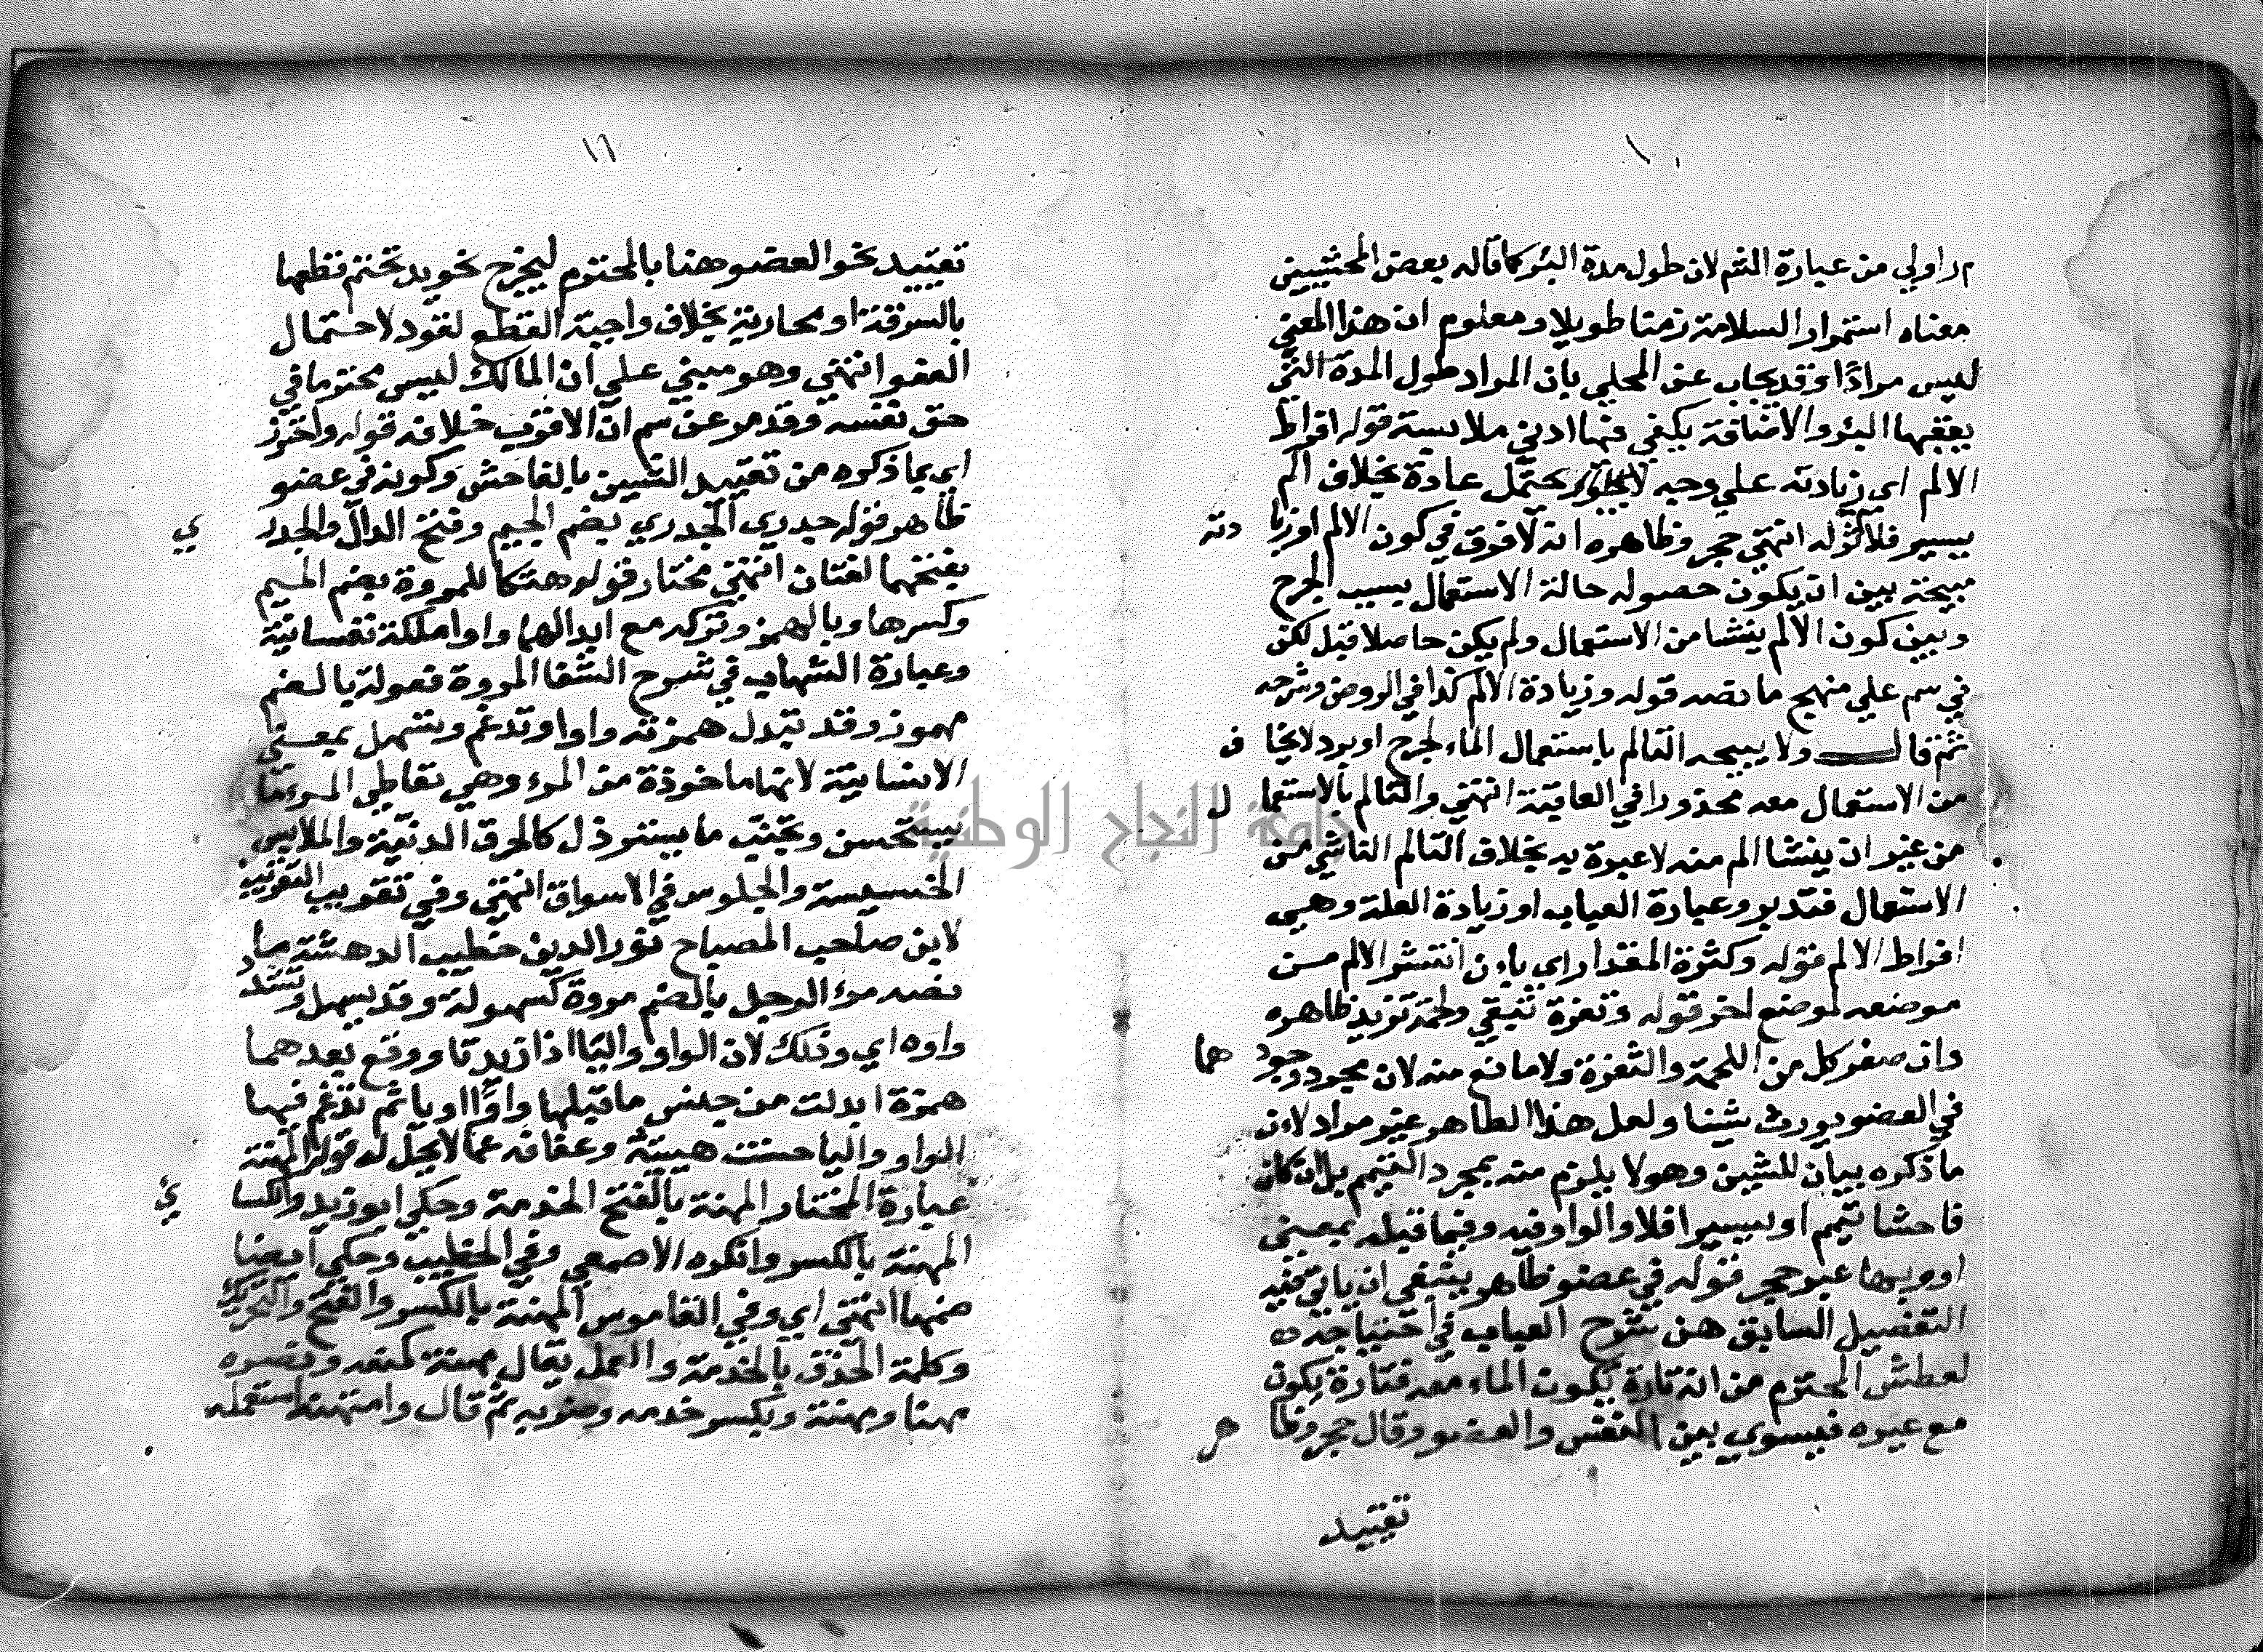 ١٠
م ر اولي من عبارة الشم لان طول مدة البئر كما قاله بعض المحشيين
معناه استمرار السلامة زمنا طويلا ومعلوم ان هذا المعني
ليس مرادًا وقد يجاب عن المحلي بان المراد طول المدة التي
يعقبها البئر والاضافة يكفي فيها ادني ملابسة قوله افراط
الالم اي زيادته علي وجه لا يحتمل عادة بخلاف الم
يسير فلا اثر له انتهي حجر وظاهره انه لا فرق في كون الالم او زيا دته
مبيحة بين ان يكون حصوله حالة الاستعمال بسبب الجرح
وبين كون الالم ينشا من الاستعمال ولم يكن حاصلا قبل لكن
في سم علي منهج ما نصه قوله وزيادة الالم كذا في الروض وشرحه
ثم قال ولا يبيحه التالم باستعمال الماء لجرح او برد لا يخا ف
من الاستعمال معه محذورا في العاقبة انتهي والتالم بالاستعما ل
من غير ان ينشا الم منه لا عبرة به بخلاف التالم الناشي من
الاستعمال فتدبر وعبارة العباب او زيادة العلة وهي
افراط الالم قوله وكثرة المقدار اي بان انتشر الالم من
موضعه لموضع اخر قوله وثغرة تبقي ولحمة تزيد ظاهره
وان صغر كل من اللحمة والثغرة ولا مانع منه لان مجرد وجود هما
في العضو يورث شينا ولعل هذا الظاهر غير مراد لان
ما ذكره بيان للشين وهو لا يلزم منه بمجرد التيمم بل ان كان
فاحشا تيمم او يسيرا فلا والواو فيه وفيما قبله بمعني
او وبها عبر حجر قوله في عضو ظاهر ينبغي ان ياتي فيه
التفصيل السابق عن شرح العباب في احتياجه
لعطش المحترم من انه تارة يكون الماء معه فتارة يكون
مع غيره فيسوي بين النفس والعضو وقال حجر وظا هر
تقييد
١٦
تقييد نحو العضو هنا بالمحترم ليخرج نحو يد تحتم قطعها
بالسرقة او محاربة بخلاف واجبة القطع لقود لاحتمال
العفو انتهي وهو مبني علي ان المالك ليس محترما في
حق نفسه وقد مر عن سم ان الاقرب خلافه قوله واحترز
اي بما ذكره من تقييد الشين بالفاحش وكونه في عضو
ظاهر قوله جدري الجدري بضم الجيم وفتح الدال والجدر ي
بفتحهما لغتان انتهي مختار قوله هتكا للمروة بضم الميم
وكسرها وبالهمز وتركه مع ابدالها واوا ملكة نفسانية
وعبارة الشهاب في شرح الشفا المروة فعولة بالضم
مهموز وقد تبدل همزته واوا وتدغم وتسهل بمعني
الانسانية لانها ماخوذة من المرء وهي تعاطي المرء ما
يستحسن وتجنب ما يسترذل كالحرف الدنية والملابس
الخسيسة والجلوس في الاسواق انتهي وفي تقريب التقريب
لابن صاحب المصباح نور الدين خطيب الدهشة ما
نصه مرء الرجل بالضم مروة كسهولة وقد يسهل وتشدد
واوه اي وذلك لان الواو والياا اذا زيدتا ووقع بعدهما
همزة ابدلت من جنس ما قبلها واوًا او يا ثم تدغم فيها
الواو واليا حسنت هيبته وعفافه عما لا يحل له قوله المهنة
عبارة المختار المهنة بالفتح الخدمة وحكي ابو زيد والكسا ي
المهنة بالكسر وانكره الاصمعي وفي الخطيب وحكي ايضا
ضمها انتهي اي وفي القاموس المهنة بالكسر والفتح والتحريك
وكلمة الحذق بالخدمة والعمل يقال مهنه كمنعه ونصره
مهنا ومهنة ويكسر خدمه وضربه ثم قال وامتهنه استعمله
جامعة النجاح الوطنية